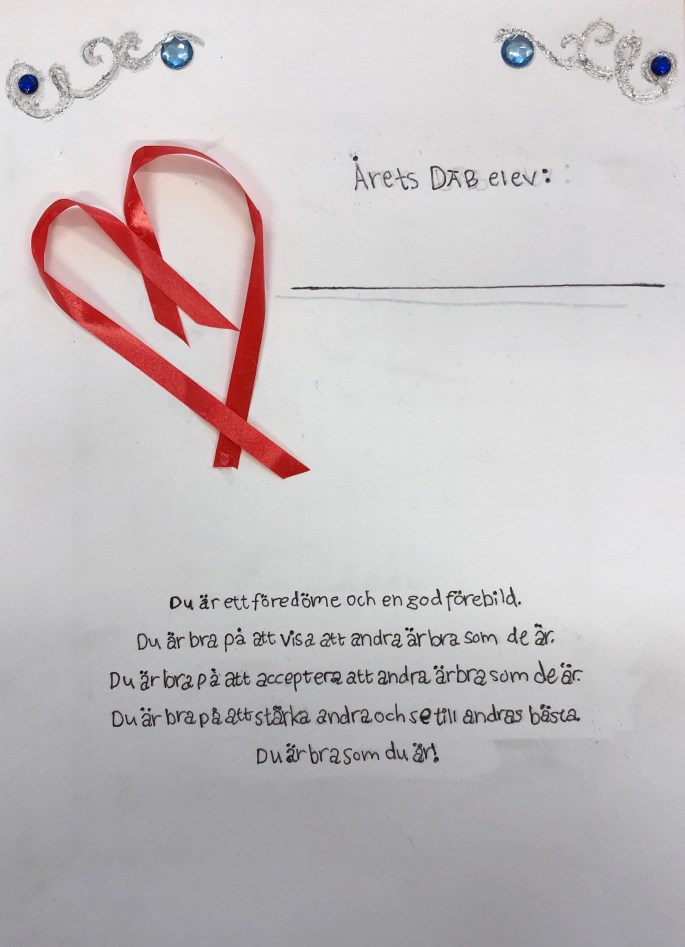 Årets DÄB elev:
Du är ett föredöme och en god förebild.
Du är bra på att visa att andra är bra som de är.
Du är bra på att acceptera att andra är bra som de är.
Du är bra på att stärka andra och se till andras bästa.
Du är bra som du är!